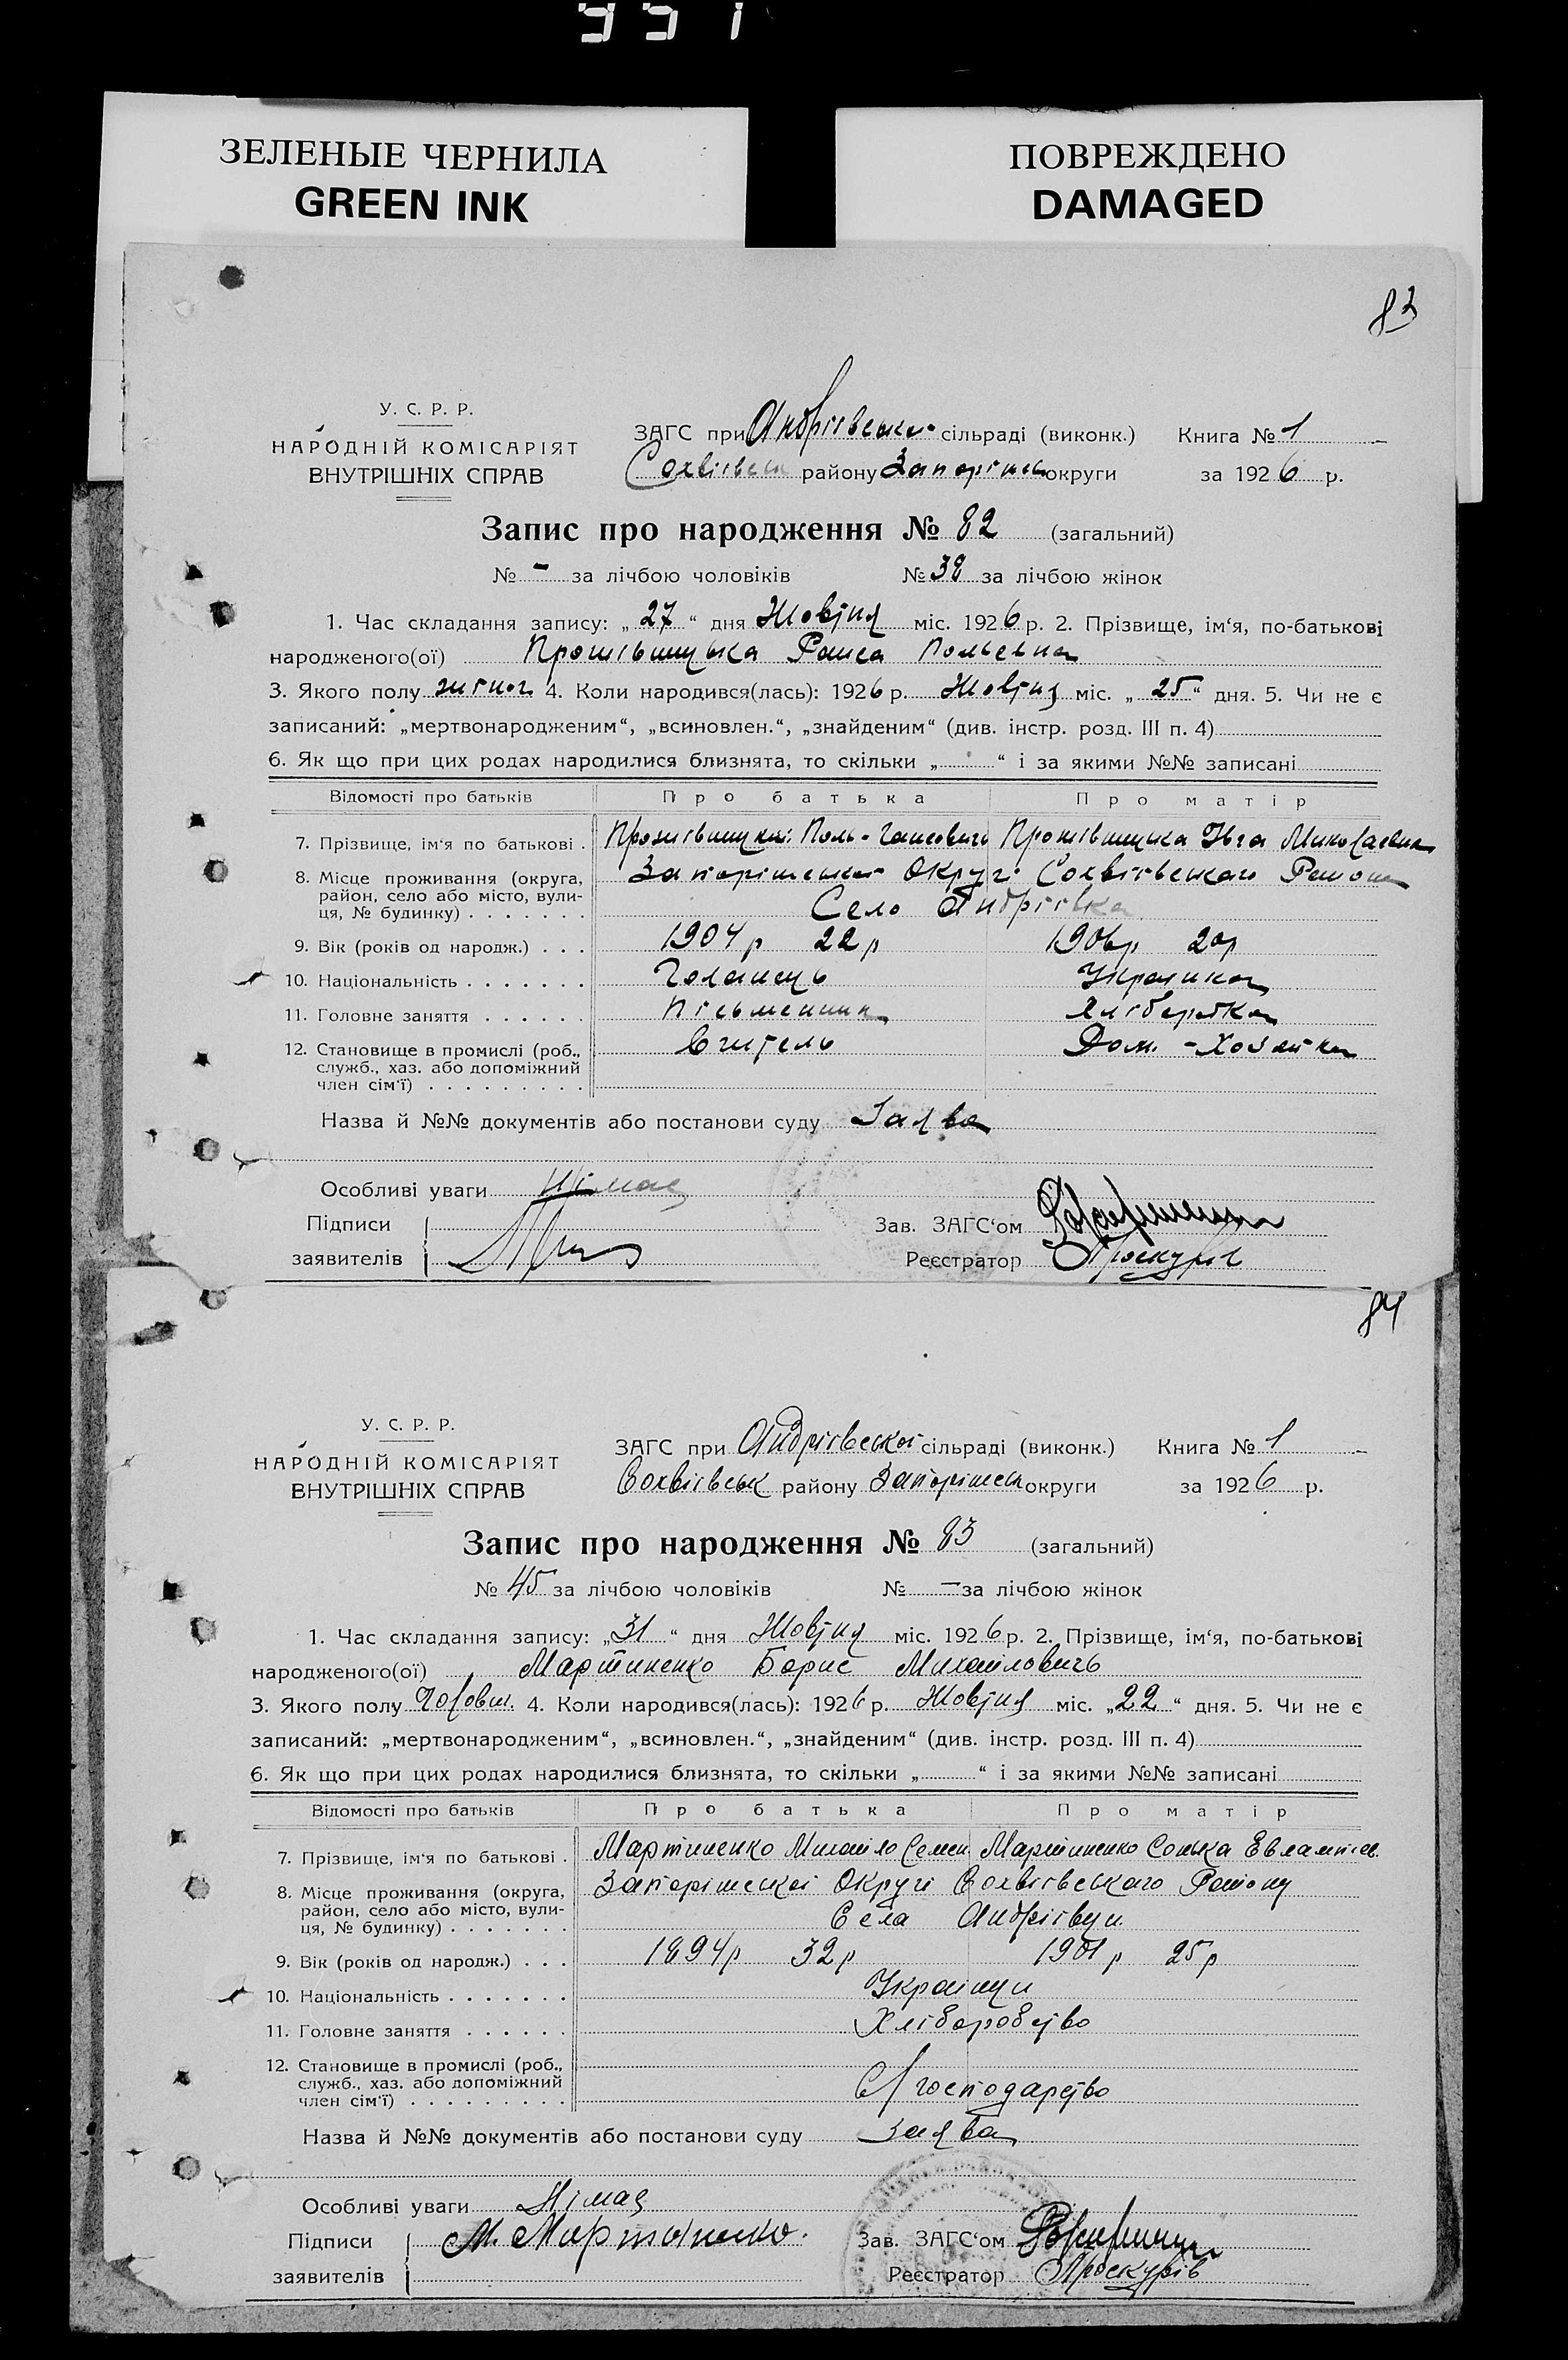 ЗЕЛЕНЫЕ ЧЕРНИЛА
GREEN INK
ПОВРЕЖДЕНО
DAMAGED
83
У. С. Р. Р.
НАРОДНІЙ КОМІСАРІЯТ
ВНУТРІШНІХ СПРАВ
ЗАГС при Андріівській сільраді (виконк.) Книга № 1
району округи за 1926 р.
Запис про народження № 82 (загальний)
№ - за лічбою чоловіків № 38 за лічбою жінок
1. Час складання запису: „ 27 “ дня Жовтня міс. 1926 р. 2. Прізвище, ім‘я, по-батькові
народженого(ої) Раиса Польевна
3. Якого полу жіноч. 4. Коли народився(лась): 1926 р. Жовтня міс. „ 25 “ дня. 5. Чи не є
записаний: „мертвонародженим“, „всиновлен.“, „знайденим“ (див. інстр. розд. III п. 4)
6. Як що при цих родах народилися близнята, то скільки „ “ і за якими №№ записані
Відомості про батьків Про батька Про матір
7. Прізвище, ім‘я по батькові . Поль- Миколаевна
8. Місце проживання (округа, Запоріжськоі Округі Району
район, село або місто, вули- Село Андріівка
ця, № будинку) . . . . . . .
9. Вік (років од народж.) . . . 1904 р 22 р 1906р 20р
10. Національність . . . . . . . Голанець Украинка
11. Головне заняття . . . . . . Пісьменник Хліборобка
12. Становище в промислі (роб., Вчитель Дом. - Хозяйка
служб., хаз. або допоміжний
член сім‘ї) . . . . . . . . .
Назва й №№ документів або постанови суду Заява
Особливі уваги Німає
Підписи Зав. ЗАГС‘ом
заявителів Реєстратор Проскурів
84
У. С. Р. Р.
НАРОДНІЙ КОМІСАРІЯТ
ВНУТРІШНІХ СПРАВ
ЗАГС при Андріівськоі сільраді (виконк.) Книга № 1
району Запоріжськ округи за 1926 р.
Запис про народження № 83 (загальний)
№ 45 за лічбою чоловіків № - за лічбою жінок
1. Час складання запису: „31“ дня Жовтня міс. 1926 р. 2. Прізвище, ім‘я, по-батькові
народженого(ої) Мартиненко Борис Михайловичь
3. Якого полу Чоловіч. 4. Коли народився(лась): 1926 р. Жовтня міс. „22“ дня. 5. Чи не є
записаний: „мертвонародженим“, „всиновлен.“, „знайденим“ (див. інстр. розд. III п. 4)
6. Як що при цих родах народилися близнята, то скільки „ “ і за якими №№ записані
Відомості про батьків Про батька Про матір
7. Прізвище, ім‘я по батькові . Мартиненко Михайло Семен Мартиненко Сонька Евлампіев.
8. Місце проживання (округа, Запоріжськоі Округі Району
район, село або місто, вули- Села Андріівки
ця, № будинку) . . . . . . .
9. Вік (років од народж.) . . . 1894р 32 р 1901 р 25 р
10. Національність . . . . . . . Украінци
11. Головне заняття . . . . . . Хліборобство
12. Становище в промислі (роб.,
служб., хаз. або допоміжний С/господарство
член сім‘ї) . . . . . . . . .
Назва й №№ документів або постанови суду Заява
Особливі уваги Німає
Підписи М. Мартыненко. Зав. ЗАГС‘ом
заявителів Реєстратор Проскурів